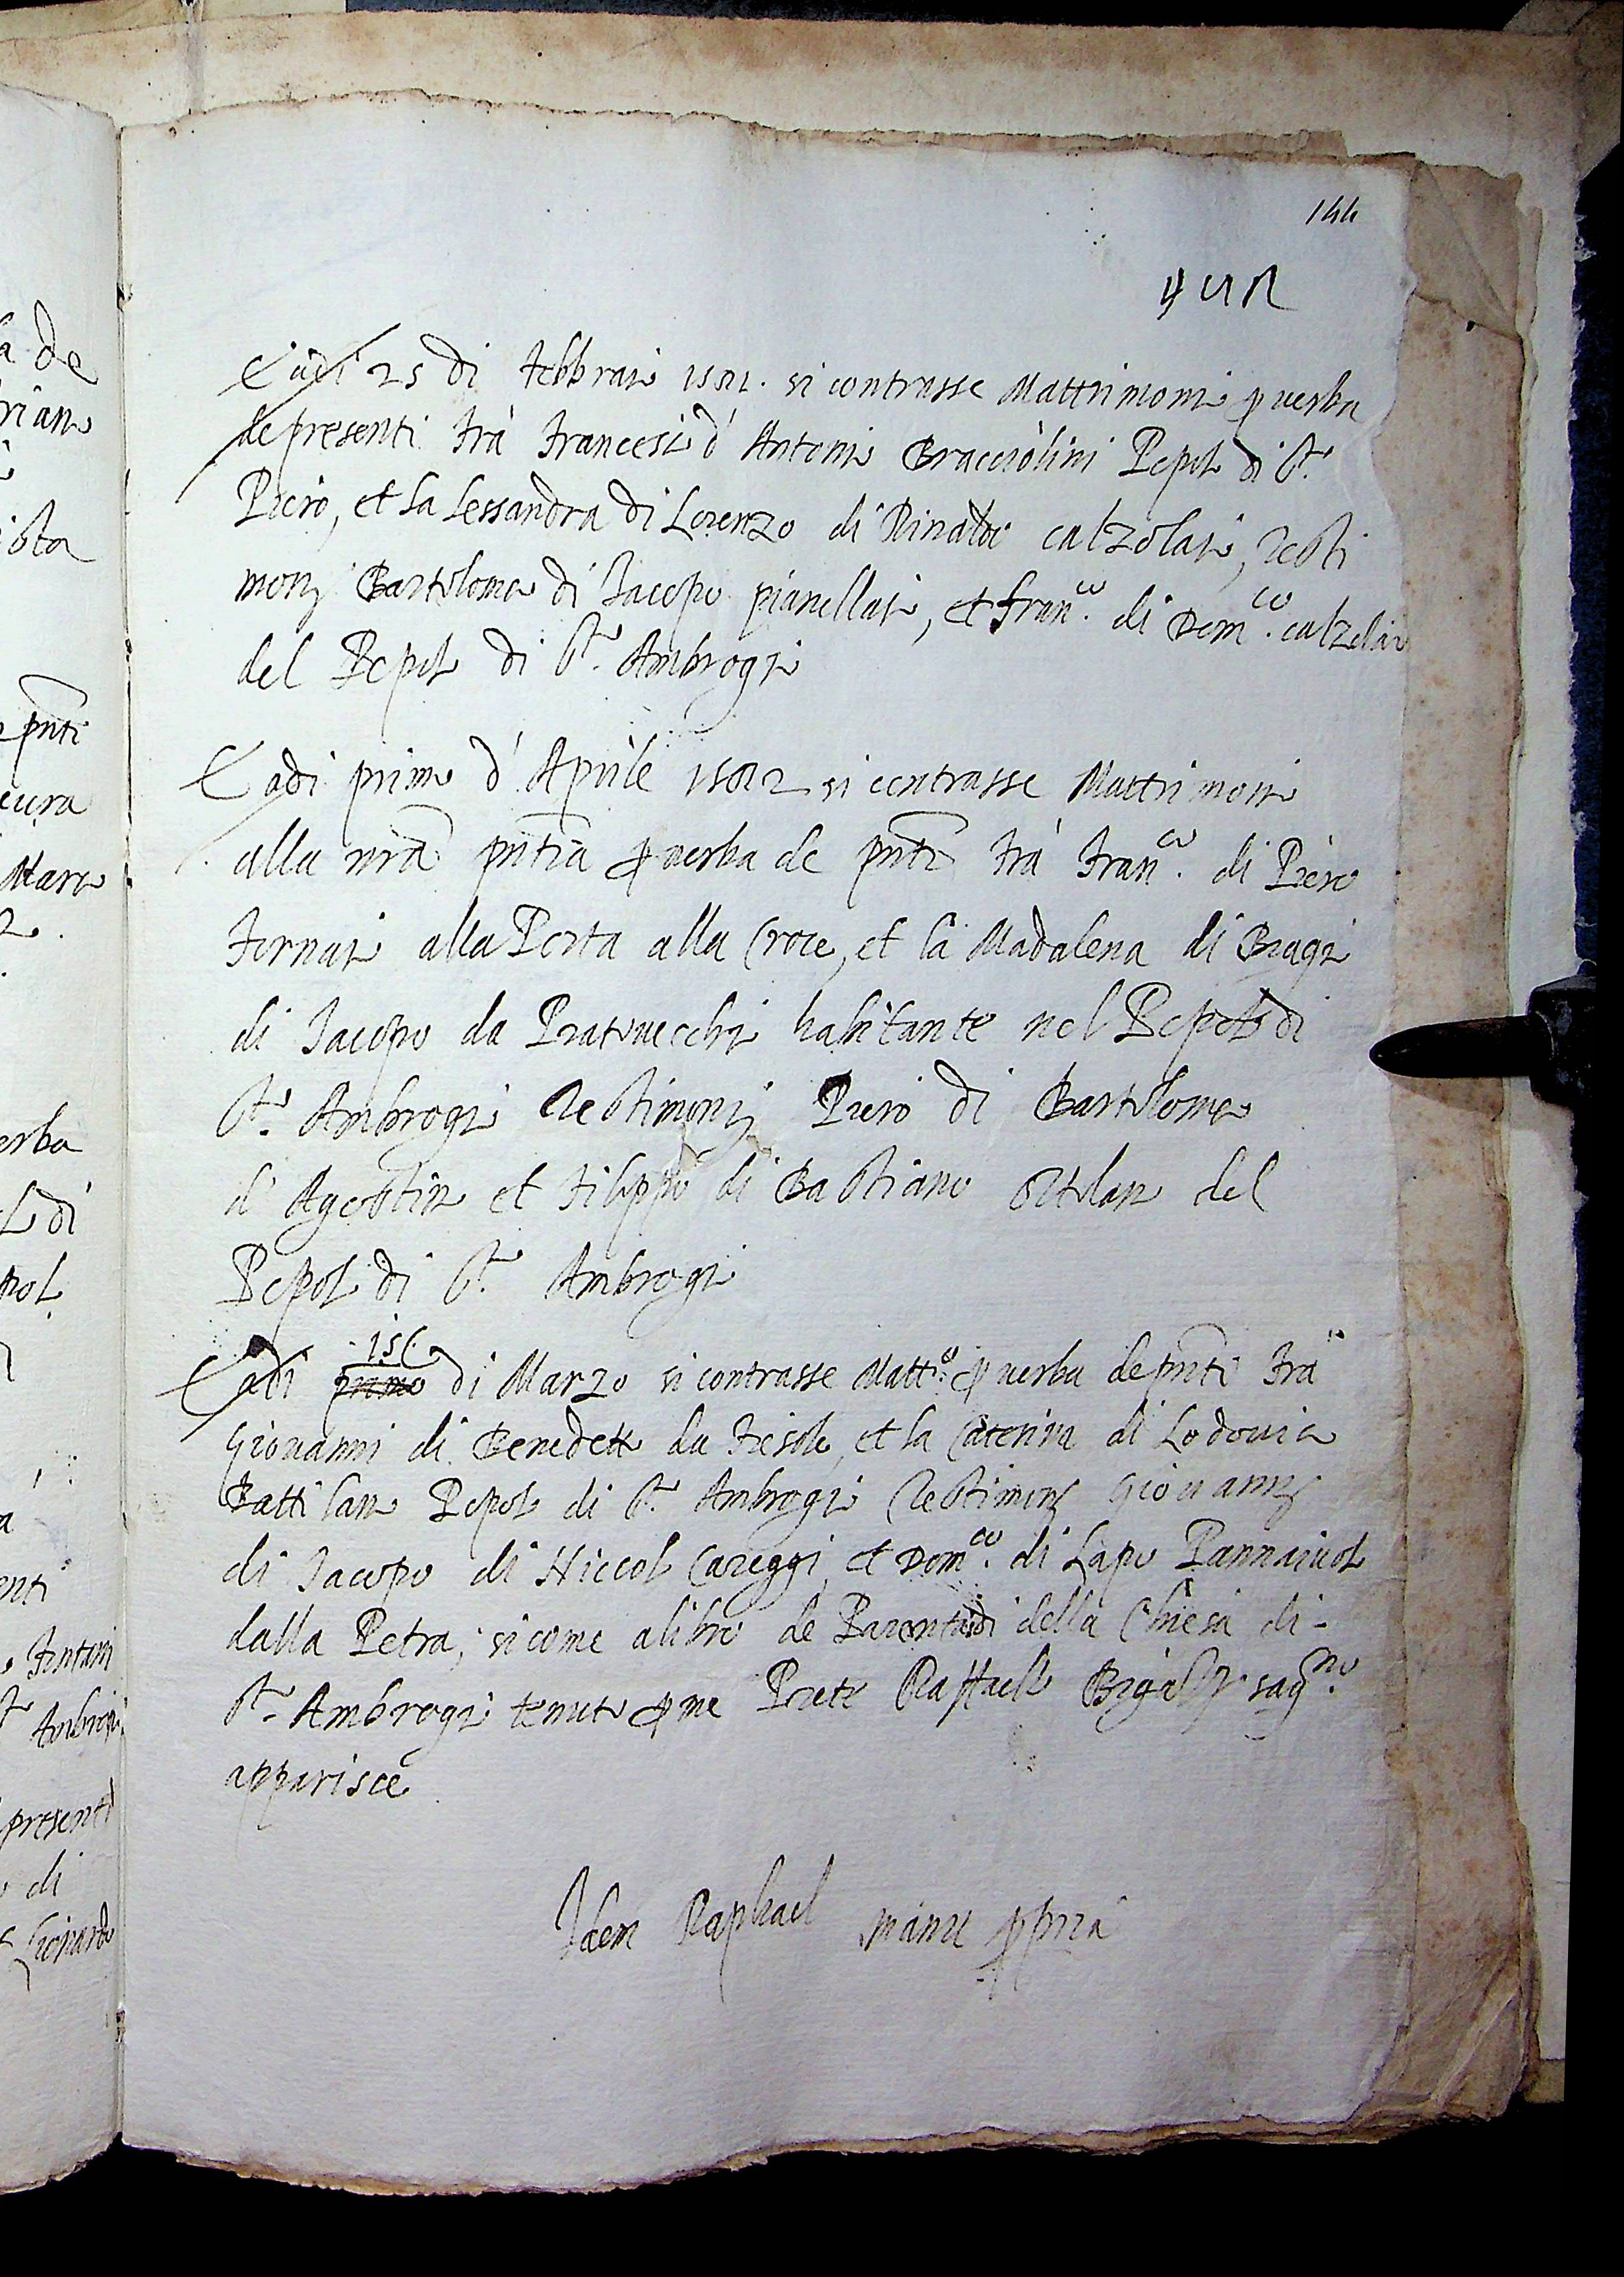 144
E adi 25 di febbraio 1581. si contrasse Mattrimonio p verba
de presenti frà Francesco d'Antonio Bracciolini Popolo di Sto
Piero, et la lessandra di Lorenzo di Rinaldo calzolaio, Testi
monj Bartolomeo di Jacopo pianellaio, et franco. di Domco. calzolaio
del Popolo di Sto. Ambrogio
E adi primo d'Aprile 1582 si contrasse Mattrimonio
alla nra pntia p verba de pnti frà Franco. di Piero
fornaio alla Porta alla Croce, et la Madalena di Biagio
di Jacopo da Pratovecchio habitante nel Popolo di
Sto. Ambrogio Testimonj Piero di Bartolomeo
d'Agostino et filippo di Bastiano ortolano del
Popolo di Sto. Ambrogio
E adi primo di Marzo si contrasse Mattro: p verba de pnti frà
Giovanni di Benedetto da fiesole, et la Caterina di Lodovico
Battilano Popolo di Sto Ambrogio Testimonj Giovannj
di Jacopo di Niccolo Careggi, et Domco. di Lapo Pannaiuolo
dalla Petra, si come a libro de Parentadi della Chiesa di
Sto. Ambrogio tenuto p me Prete Raffaello sagno.
apparisce
Idem Raphael manu ppria
a de
pnti
cura
Marco
erba
di
presenti
di
Lionardo